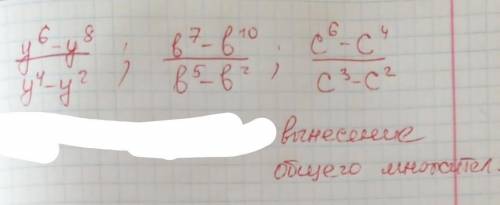 y⁶-y⁸/y⁴-y² ; b⁷-b¹⁰/b⁵-b² ; c⁶-c⁴/c³-c²
вынесение
общего множител.